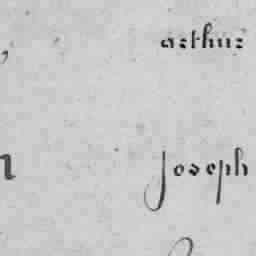 arthur
Joseph